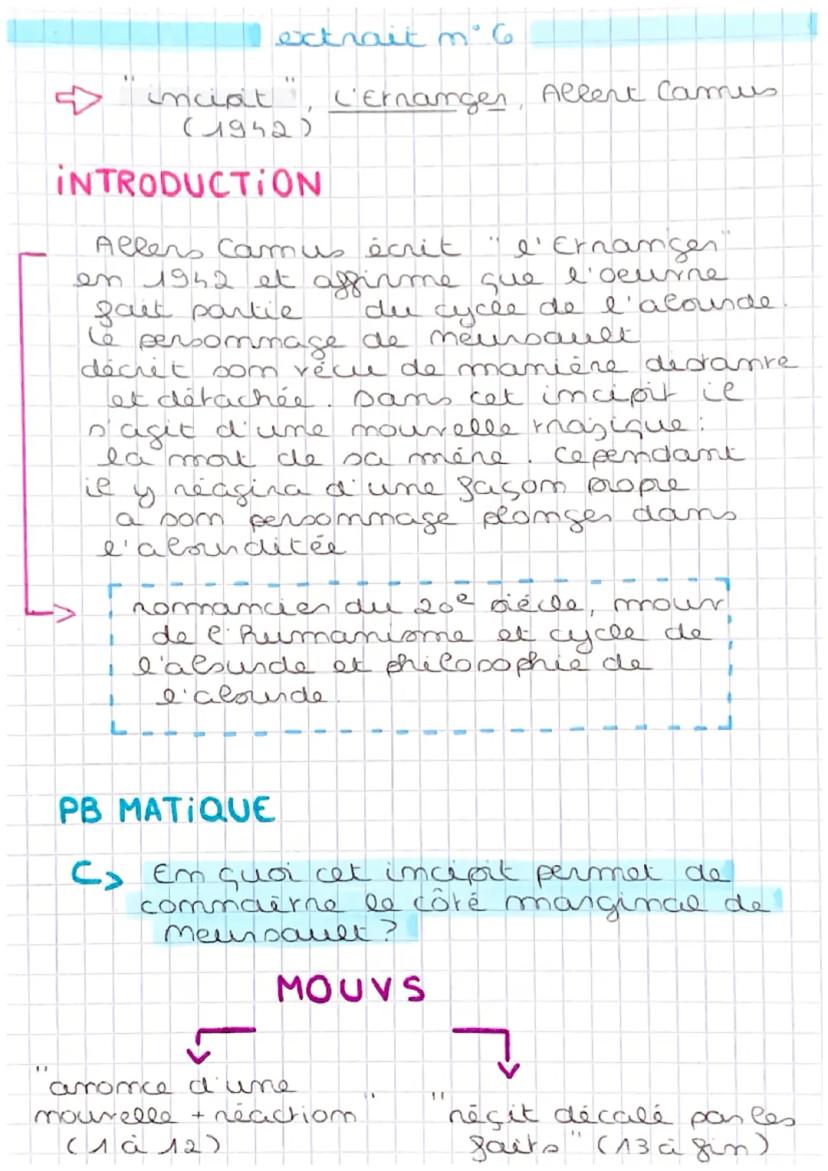 extrait n°6
"incipit", L'Etranger, Albert Camus
(1942)
INTRODUCTION
Albers Camus écrit "l'Etranger"
en 1942 et affirme que l'oeuvre
fait partie du cycle de l'absurde.
Le personnage de Meursault
décrit son vécu de manière distante
et détachée. Dans cet incipit il
s'agit d'une nouvelle tragique :
la mort de sa mère. Cependant
il y réagira d'une façon propre
a son personnage plonger dans
l'absurditée
romancier du 20e siècle, mouv
de l'humanisme et cycle de
l'absurde et philosophie de
l'absurde.
PB MATIQUE
En quoi cet incipit permet de
connaître le côté marginal de
Meursault ?
MOUVS
"anonce d'une
nouvelle + réaction"
(1 à 12)
"réçit décalé par les
faits" (13 à fin)